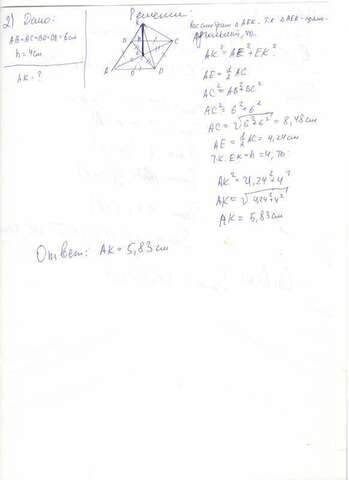 2) Дано:
AB=BC=BD=DA=6см
h=4см
AK-?
Решение:
K
B
C
E
A
D
Рассмотрим △AEK. Т.к △AEK - прям-
оугольный, то
AK²=AE²+EK².
AE=½AC.
AC²=AB²+BC²
AC²=6²+6²
AC=√6²+6²=8,48см
AE=½AC=4,24см
т.к. EK=h=4, то:
AK²=4,24²+4²
AK=√4,24²+4²
AK=5,83см
Ответ: AK=5,83см